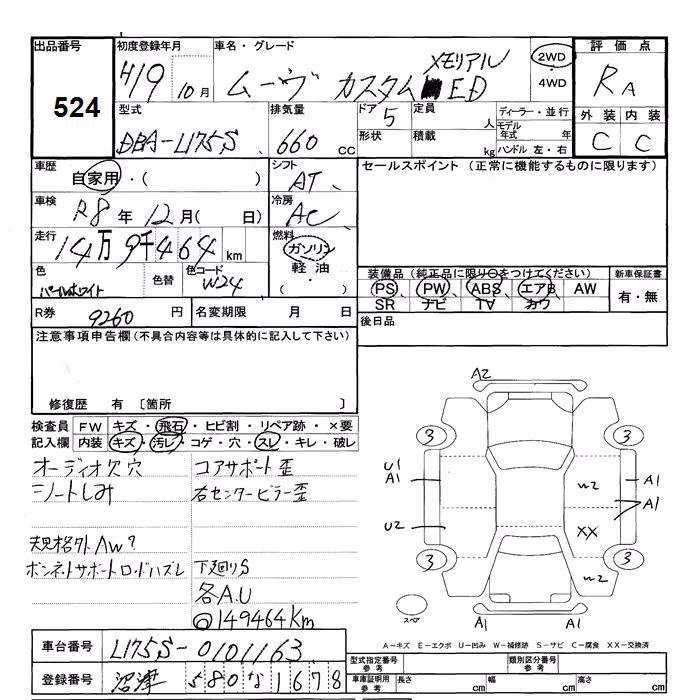 出品番号 524
初度登録年月 H19 10月
車名・グレード ムーヴ カスタム メモリアルED
2WD ・ 4WD
評価点 RA
外装 内装
C C
型式 DBA-L175S
排気量 660 cc
ドア 5
形状
定員 人
積載 kg
ディーラー・並行
モデル年式 年
ハンドル 左・右
車歴 自家用・( )
シフト AT
セールスポイント (正常に機能するものに限ります)
車検 R8年 12月( 日)
冷房 AC
走行 14万9千464 km
燃料 ガソリン 軽油 ・( )
色 パールホワイト
色替
色コード W24
装備品 (純正品に限り○をつけてください)
新車保証書
PS PW ABS エアB AW
有・無
SR ナビ TV カワ
R券 9260 円
名変期限 月 日
後日品
注意事項申告欄 (不具合内容等は具体的に記入して下さい)
修復歴 有 [箇所 ]
検査員記入欄
FW キズ・飛石・ヒビ割・リペア跡・×要
内装 キズ・汚レ・コゲ・穴・スレ・キレ・破レ
オーディオ欠穴
シートしみ
規格外AW?
ボンネットサポートロッドハズレ
コアサポート歪
右センターピラー歪
下廻りS
各A.U
◎149464Km
A2
3 3
U1
A1
W2
A1
A1
U2
XX
3 3
W2
スペア
A1 A1
A-キズ E-エクボ U-凹み W-補修跡 S-サビ C-腐食 XX-交換済
車台番号 L175S-0101163
登録番号 沼津 580 な 1678
型式指定番号 参考
類別区分番号 参考
車庫証明用 参考
長さ cm
幅 cm
高さ cm